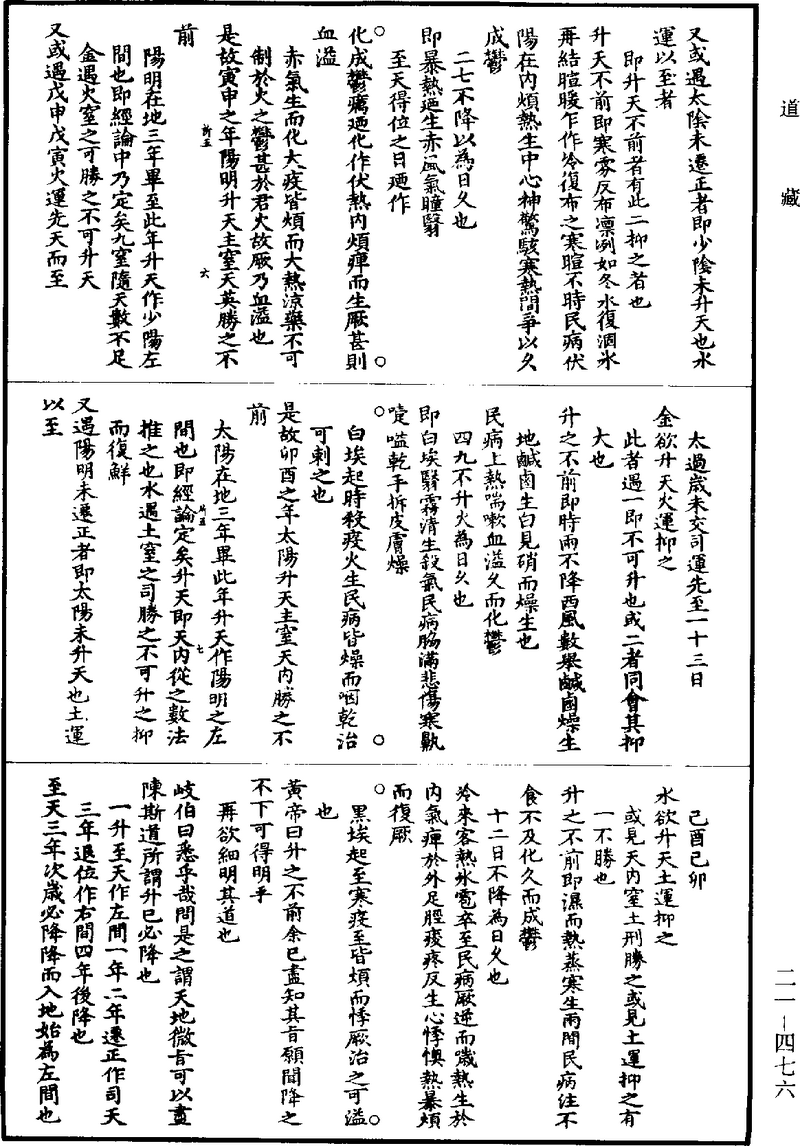 道藏
又或遇太陰未遷正者即少陰未升天也水
運以至者
即升天不前者有此二抑之者也
升天不前即寒雰反布凛冽如冬水復涸氷
再結暄暖乍作冷復布之寒暄不時民病伏
陽在内煩熱生中心神驚駭寒熱間爭以久
成鬱
二七不降以為日久也
即暴熱廼生赤風氣瞳翳
至天得位之日廼作
化成鬱癘廼化作伏熱内煩痺而生厥甚則
血溢
赤氣生而化大疫皆煩而大熱涼藥不可
制於火之鬱甚於君火故厥乃血溢也
是故寅申之年陽明升天主窒天英勝之不
前
陽明在地三年畢至此年升天作少陽左
間也即經論中乃定矣九窒隨天數不足
金遇火窒之可勝之不可升天
又或遇戊申戊寅火運先天而至
太過歲未交司運先至一十三日
金欲升天火運抑之
此者遇一即不可升也或二者同會其抑
大也
升之不前即時雨不降西風數舉鹹鹵燥生
地鹹鹵生白見硝而燥生也
民病上熱喘嗽血溢久而化鬱
四九不升火為日久也
即白埃翳霧清生殺氣民病脇滿悲傷寒鼽
嚏嗌乾手拆皮膚燥
白埃起時殺疫火生民病皆燥而咽乾治
可刺之也
是故卯酉之年太陽升天主窒天内勝之不
前
太陽在地三年畢此年升天作陽明之左
間也即經論定矣升天即天内從之數法
推之也水遇土窒之司勝之不可升之抑
而復鮮
又遇陽明未遷正者即太陽未升天也土運
以至
己酉己卯
水欲升天土運抑之
或見天内窒土刑勝之或見土運抑之有
一不勝也
升之不前即濕而熱蒸寒生兩間民病注不
食不及化久而成鬱
十二日不降為日久也
冷來客熱氷雹卒至民病厥逆而噦熱生於
内氣痺於外足脛痠疼反生心悸懊熱暴煩
而復厥
黑埃起至寒疫至皆煩而悸厥治之可溢
也
黃帝曰升之不前余已盡知其旨願聞降之
不下可得明乎
再欲細明其道也
岐伯曰悉乎哉問是之謂天地微旨可以盡
陳斯道所謂升已必降也
一升至天作左間一年二年遷正作司天
三年退位作右間四年後降也
至天三年次歲必降降而入地始為左間也
二一—四七六